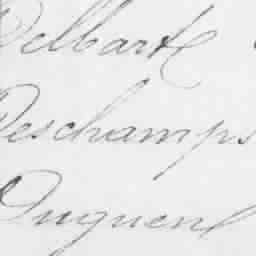 Delbart
Deschamps
Duquene